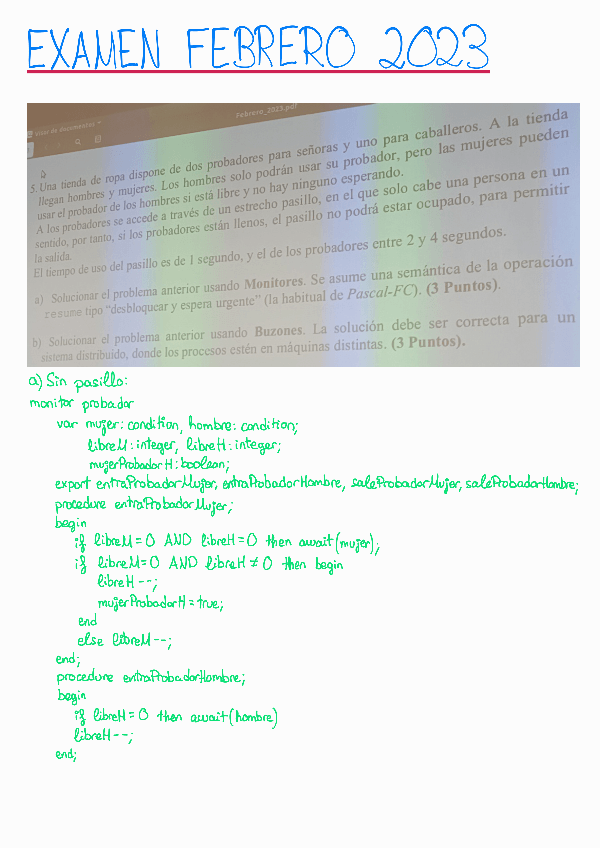 EXAMEN FEBRERO 2023
Visor de documentos
Febrero_2023.pdf
5. Una tienda de ropa dispone de dos probadores para señoras y uno para caballeros. A la tienda
llegan hombres y mujeres. Los hombres solo podrán usar su probador, pero las mujeres pueden
usar el probador de los hombres si está libre y no hay ninguno esperando.
A los probadores se accede a través de un estrecho pasillo, en el que solo cabe una persona en un
sentido, por tanto, si los probadores están llenos, el pasillo no podrá estar ocupado, para permitir
la salida.
El tiempo de uso del pasillo es de 1 segundo, y el de los probadores entre 2 y 4 segundos.
a) Solucionar el problema anterior usando Monitores. Se asume una semántica de la operación
resume tipo "desbloquear y espera urgente" (la habitual de Pascal-FC). (3 Puntos).
b) Solucionar el problema anterior usando Buzones. La solución debe ser correcta para un
sistema distribuido, donde los procesos estén en máquinas distintas. (3 Puntos).
a) Sin pasillo:
monitor probador
var mujer: condition, hombre: condition;
libreM: integer, libreH: integer;
mujerProbadorH: boolean;
export entraProbadorMujer, entraProbadorHombre, saleProbadorMujer, saleProbadorHombre;
procedure entraProbadorMujer;
begin
if libreM=0 AND libreH=0 then await(mujer);
if libreM=0 AND libreH≠0 then begin
libreH--;
mujerProbadorH=true;
end
else libreM--;
end;
procedure entraProbadorHombre;
begin
if libreH=0 then await(hombre)
libreH--;
end;